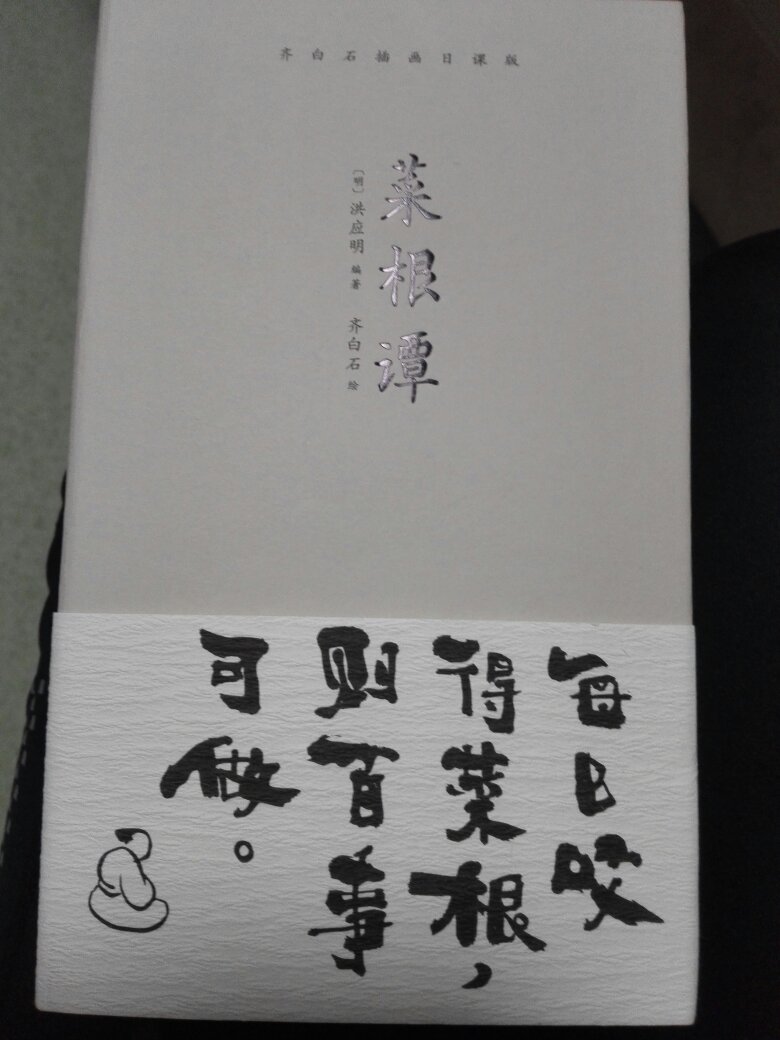 齐白石插画日课版
菜根谭
〔明〕洪应明 编著 齐白石 绘
每日咬
得菜根，
则百事
可做。